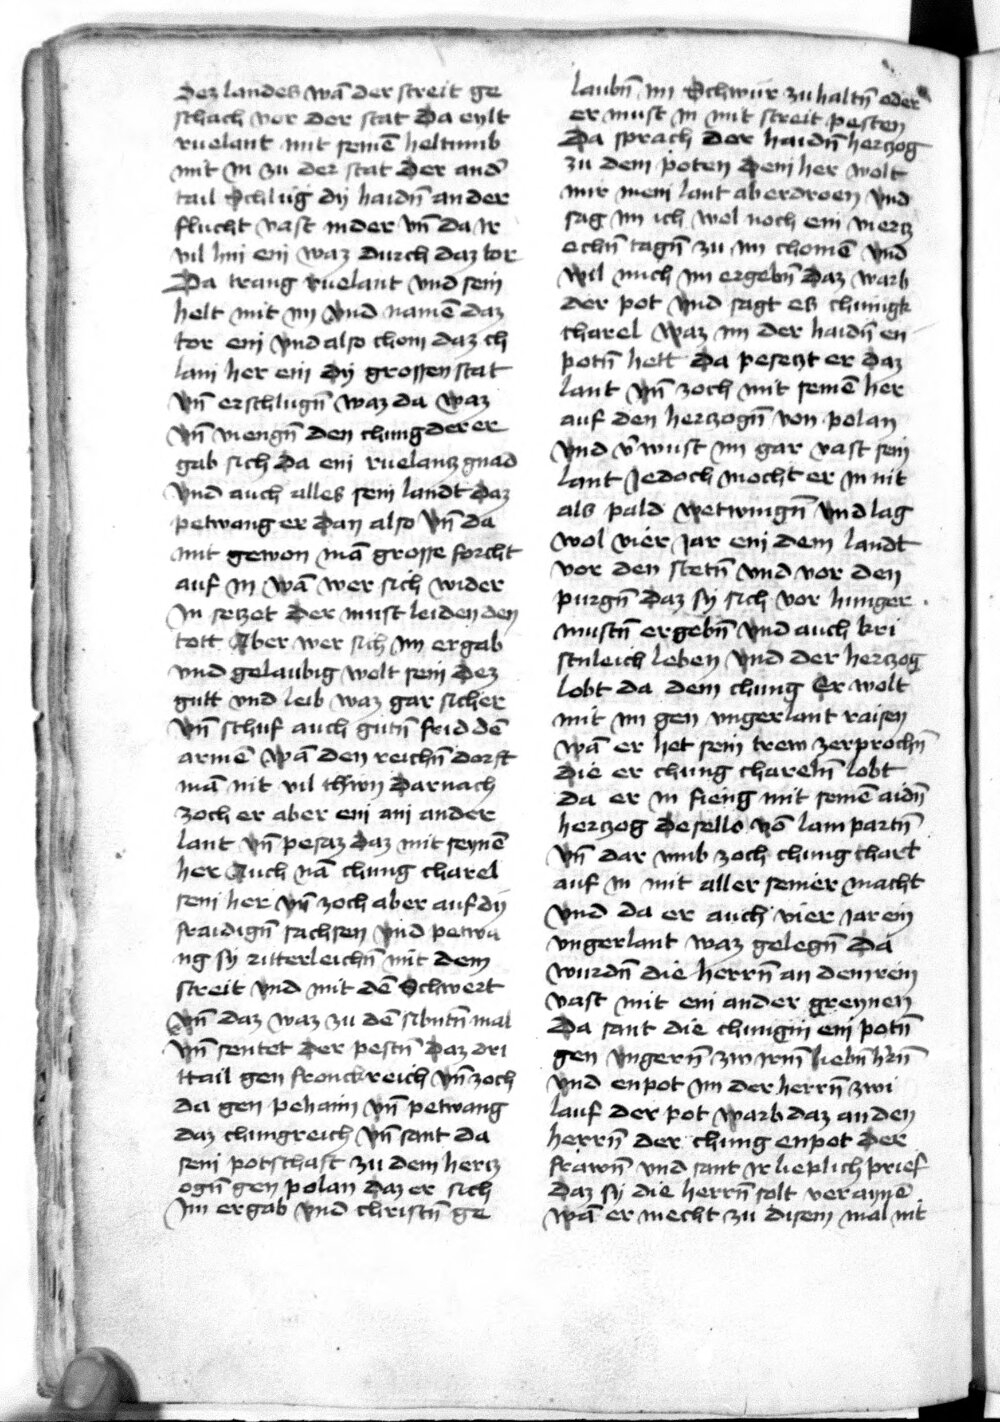 Dez landes wā der streit ge
schach vor der stat Da eylt
ruelant mit seinē heltumb
mit in zu der stat Der and᾽
tail Schlug dÿ haidn̄ an der
flucht vast nider vn̄ da ir
vil hin ein waz durch daz tor
Da trang ruelant vnd sein
helt mit im vnd namē daz
tor ein vnd also chom daz ch
lain her ein dÿ grossen stat
vn̄ erschlugn̄ waz da waz
vn̄ viengn̄ den chung der er
gab sich da ein ruelantz gnad
vnd auch alles sein landt daz
petwang er Dan also vn̄ da
mit gewon mā grosse forcht
auf in wā wer sich wider
In setzet Der must leiden den
tott Aber wer sich im ergab
vnd gelaubig wolt sein Dez
gutt vnd leib waz gar sicher
vn̄ schuf auch gutn̄ frid dē
armē wā den reichn̄ dorft
mā nit vil thun Darnach
zoch er aber ein ain ander
lant vn̄ pesaz daz mit seynē
her Auch nā chung charel
sein her vn̄ zoch aber auf dÿ
fraidign̄ sachsen vnd petwa
ng sÿ ritterleichn̄ mit dem
streit vnd mit dē Schwert
vn̄ daz waz zu dē sibntn̄ mal
vn̄ sentet Der pestn̄ Daz dri
ttail gen fronckreich vn̄ zoch
da gen pehaim vn̄ petwang
daz chungreich vn̄ sant da
sein potschaft zu dem hertz
ogn̄ gen polan daz er sich
Im ergab vnd christn̄ ge
laubn̄ im Schwur zu haltn̄ oder
er must in mit streit pesten
Da sprach der haidn̄ hertzog
zu dem poten Dein her wolt
mir mein lant aberdroen vnd
sag im ich wol noch ein viertz
echn̄ tagn̄ zu im chomē vnd
wil mich im ergebn̄ Daz warb
der pot vnd sagt es chunigk
charel waz im der haidn̄ en
potn̄ hett Da pesetzt er daz
lant vn̄ zoch mit seinē her
auf den hertzogn̄ von polan
vnd v᾽wust im gar vast sein
lant Jedoch mocht er in nit
als pald wetwingn̄ vnd lag
wol vier jar ein dem landt
vor den stetn̄ vnd vor den
purgn̄ daz sÿ sich vor hunger
mustn̄ ergebn̄ vnd auch kri
stnleich leben vnd der hertzog
lobt da dem chung Er wolt
mit im gen vngerlant raisen
wā er het sein trew zerprochn̄
die er chung chareln̄ lobt
da er in fieng mit seinē aidn̄
hertzog desells vō lampartn̄
vn̄ dar vmb zoch chung charl
auf in mit aller seiner macht
vnd da er auch vier jar ein
vngerlant waz gelegn̄ Da
wurdn̄ die herrn̄ an dem rein
vast mit ein ander greynen
Da sant die chunigin ein potn̄
gen vngern̄ zw irm̄ liebn̄ h᾽rn̄
vnd enpot im der herrn̄ zwi
lauf der pot warb daz an den
herrn̄ der chung enpot der
frawn̄ vnd sant ir lieplich prief
daz sÿ die herrn̄ solt veraynē
wā er mecht zu disem mal nit